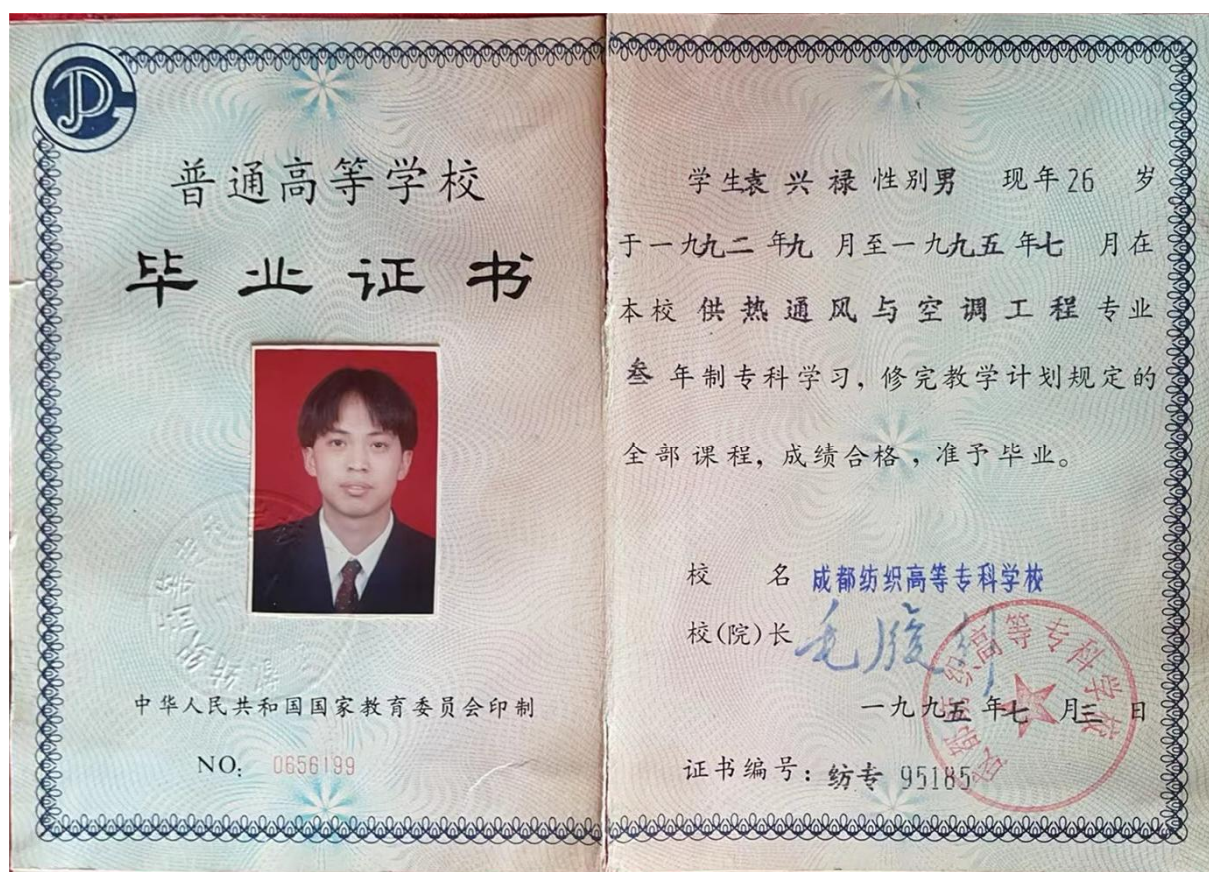 普通高等学校
毕业证书
中华人民共和国国家教育委员会印制
NO: 0656199
学生袁兴禄性别男 现年26 岁
于一九九二年九 月至一九九五年七 月在
本校 供热通风与空调工程 专业
叁 年制专科学习, 修完教学计划规定的
全部课程, 成绩合格, 准予毕业。
校 名 成都纺织高等专科学校
校(院)长
一九九五年七 月三 日
证书编号: 纺专 95185
成都纺织高等专科学校